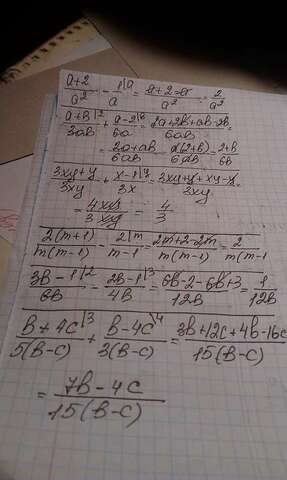 (a+2)/a² - 1\a/a = (a+2-a)/a² = 2/a²
(a+b)\2/3ab + (a-2)\b/6a = (2a+2b+ab-2b)/6ab =
= (2a+ab)/6ab = a(2+b)/6ab = (2+b)/6b
(3xy+y)/3xy + (x-1)\y/3x = (3xy+y+xy-y)/3xy
= 4xy/3xy = 4/3
2(m+1)/m(m-1) - 2\m/m-1 = (2m+2-2m)/m(m-1 = 2/m(m-1
(3b-1)\2/6b - (2b-1)\3/4b = (6b-2-6b+3)/12b = 1/12b
(b+4c)\3/5(b-c) + (b-4c)\4/3(b-c) = (3b+12c+4b-16c)/15(b-c)
= (7b-4c)/15(b-c)